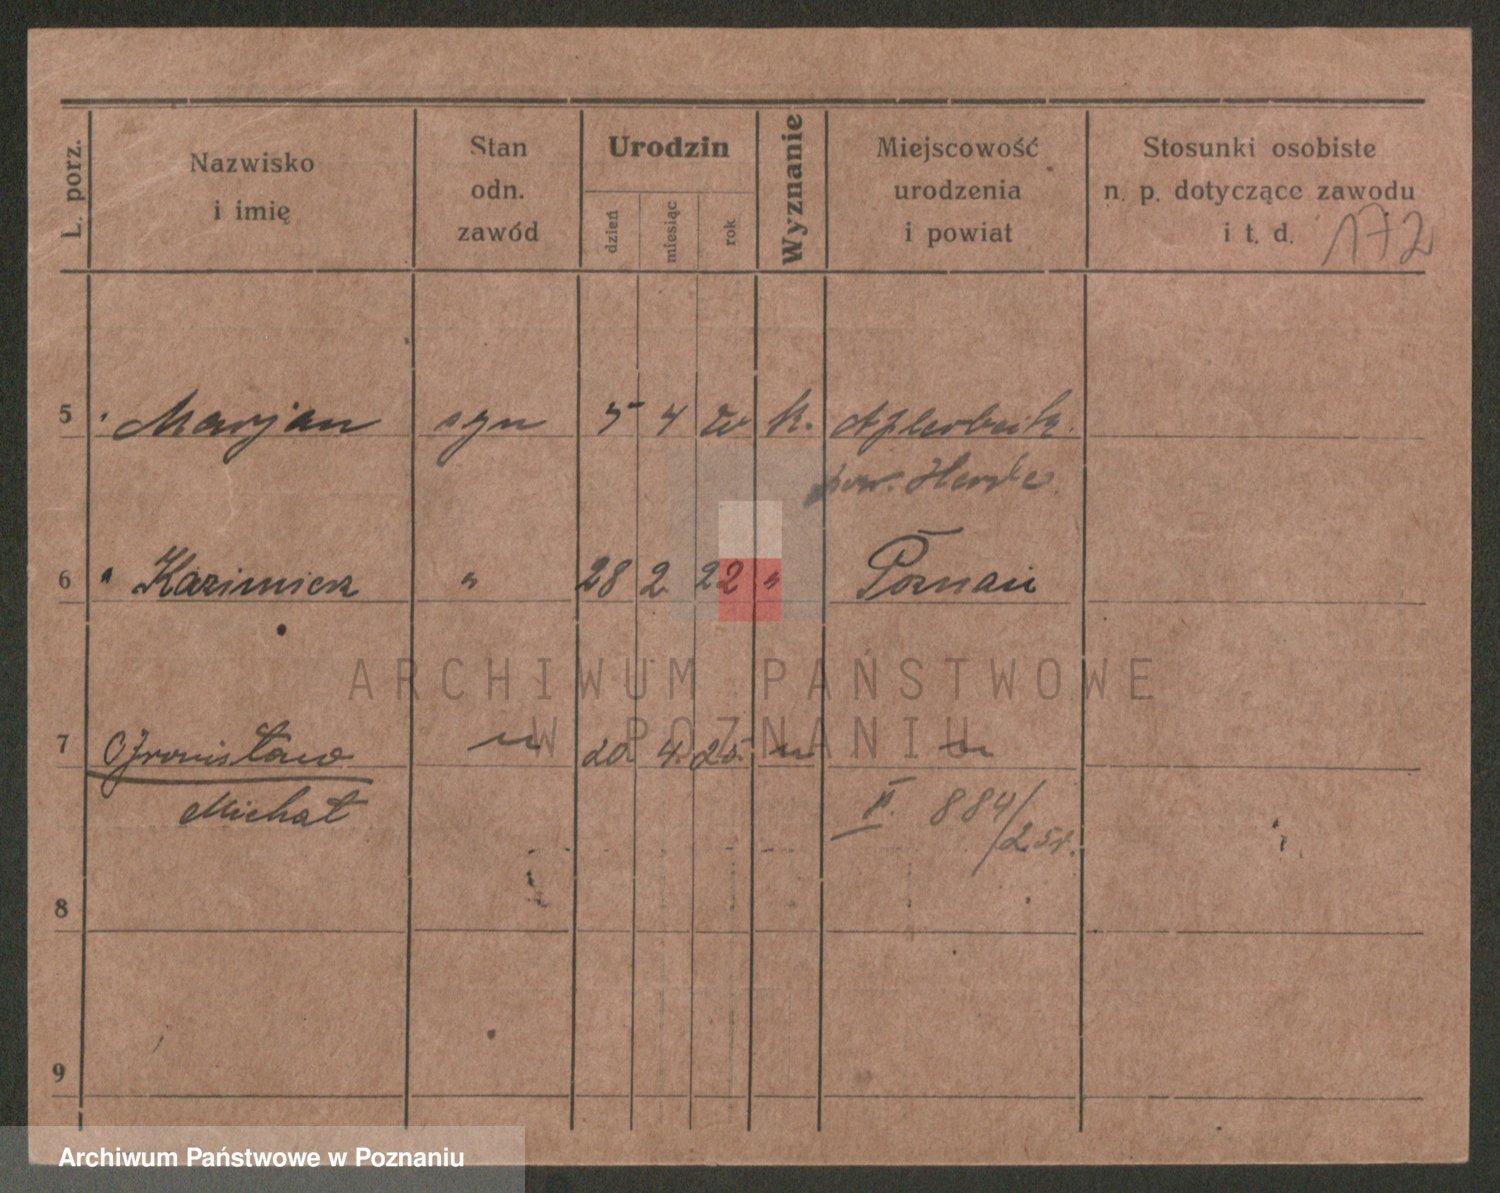 L. porz.
Nazwisko
i imię
Stan
odn.
zawód
Urodzin
dzień
miesiąc
rok
Wyznanie
Miejscowość
urodzenia
i powiat
Stosunki osobiste
n. p. dotyczące zawodu
i t. d.
172
5 Marjan syn 5 4 20 k. Aplerbeik.
pow. Herde
6 Kazimierz " 28 2 22 " Poznań
ARCHIWUM PAŃSTWOWE
W POZNANIU
7 Bronisław " 20 4. 25. " "
Michał
II. 884/25r.
8
9
Archiwum Państwowe w Poznaniu